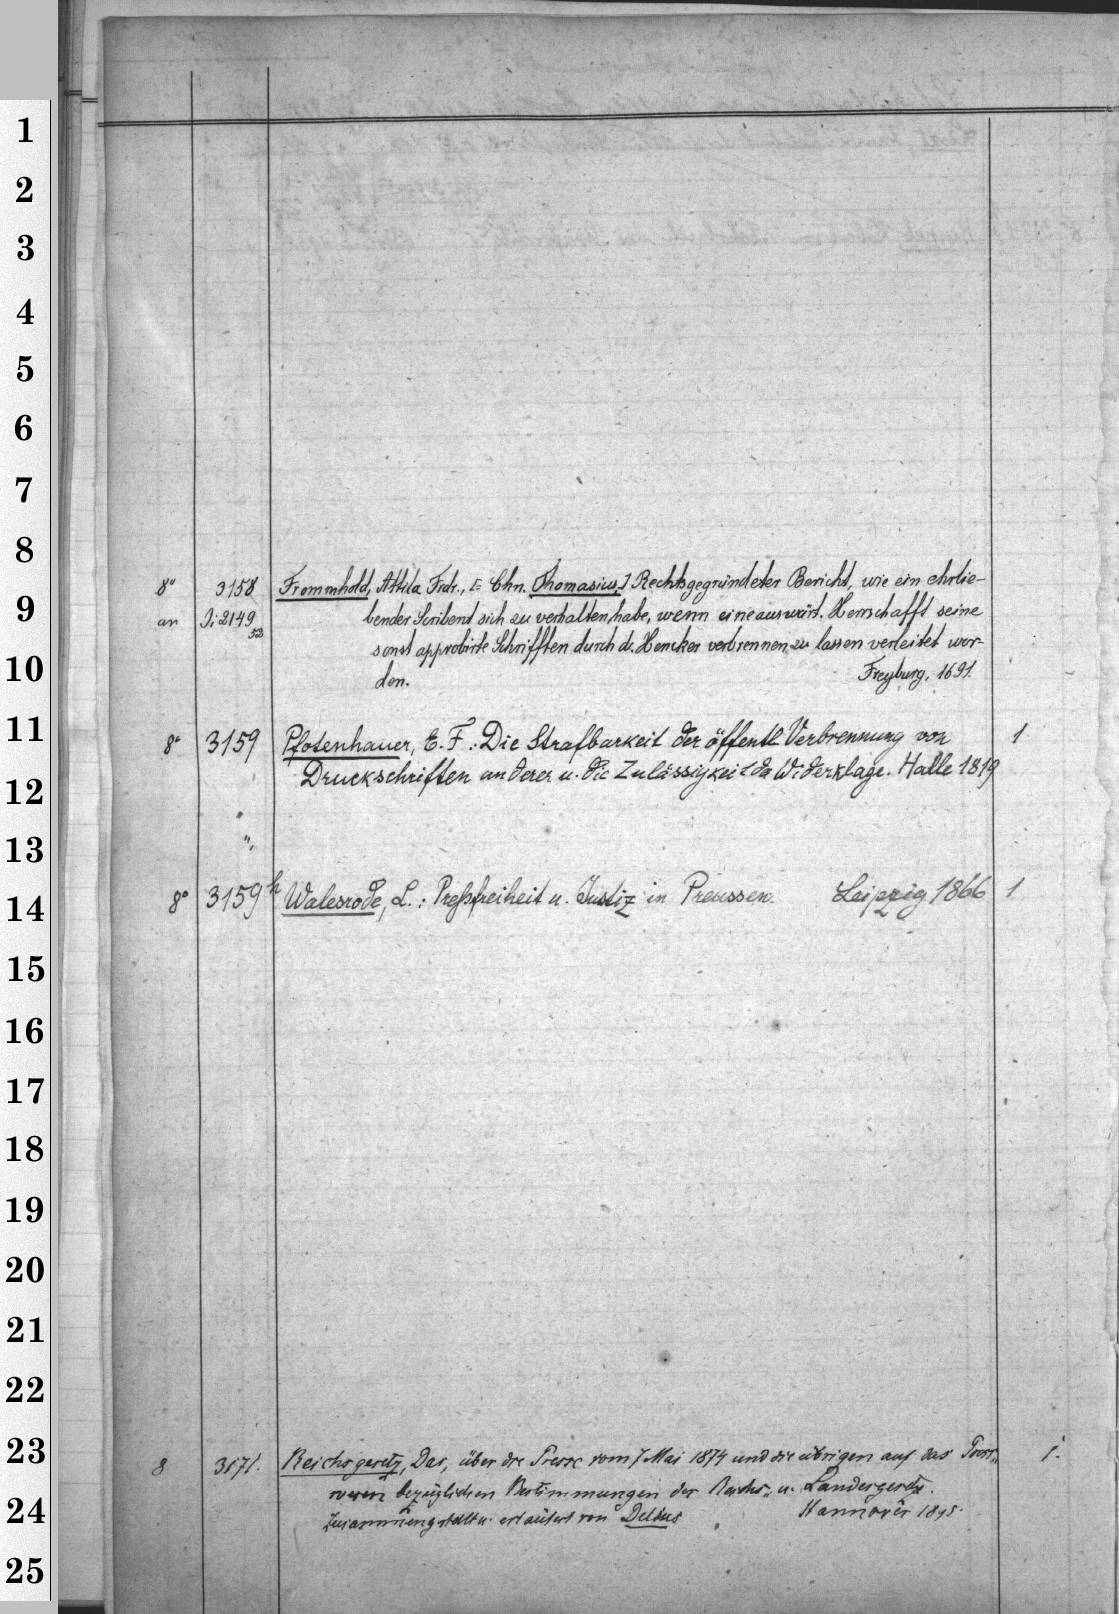 1
2
3
4
5
6
7
8
8° 3158 Frommhold, Attila Frdr., [= Chn. Thomasius,] Rechtsgegründeter Bericht, wie ein ehrlie-
9
an Di 2149 52 bender Scribent sich zu verhalten habe, wenn eine auswärt. Herrschafft seine
sonst approbirte Schrifften durch d. Hencker verbrennen zu lassen verleitet wor-
10
den. Freyburg, 1691.
11
8° 3159 Pfotenhauer, E. F.: Die Strafbarkeit der öffentl Verbrennung von 1
Druckschriften anderer u. die Zulässigkeit der Widerklage. Halle 1819
12
13
8° 3159h Walesrode, L.: Preßfreiheit u. Justiz in Preussen. Leipzig 1866 1
14
15
16
17
18
19
20
21
22
23
8 3171. Reichsgesetz, Das, über die Presse vom 7 Mai 1874 und die übrigen auf das Press-
wesen bezüglichen Bestimmungen der Reichs- u. Landesgesetz.
24
Zusammengestellt u. erläutert von Delius Hannover 1895.
25